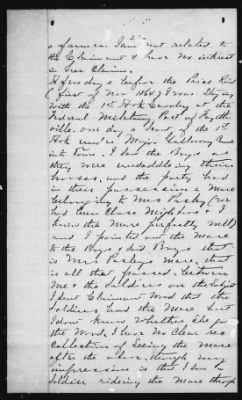 a farmer. I am not related to
the Claimant & have no interest
in her Claim.
A few days before the Price Raid
(first of Nov 1864) I was Staying
with the 1st Ark Cavalry at the
Federal Military Post of Fayette
ville. one day a part of the 1st
Ark under Major Galloway came
into town. I saw the Boys and
they were unsaddling their
horses, and the party had
in their possession a Mare
belonging to Mrs Parley
had been Close Neighbors & I
Knew the Mare perfectly well
and I pointed out the Mare
to the Boys & said Boys that
is Mrs Parleys Mare, that
is all that passed between
me & the Soldiers on the Subject
I sent Claimant Word that the
Soldiers had the Mare but
I dont know whether She got
the Word. I have no Clear re
Collection of Seeing the Mare
after the above, though my
impression is that I saw a
Soldier riding the Mare through